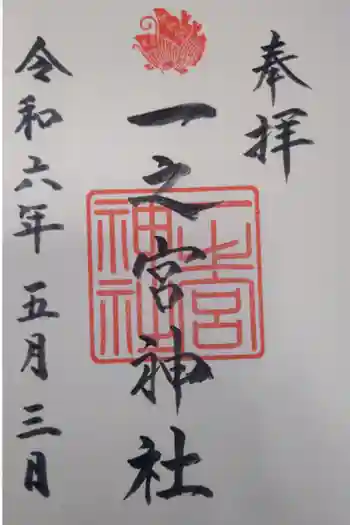 奉拝
一之宮神社
一之宮
神社
令和六年 五月 三日